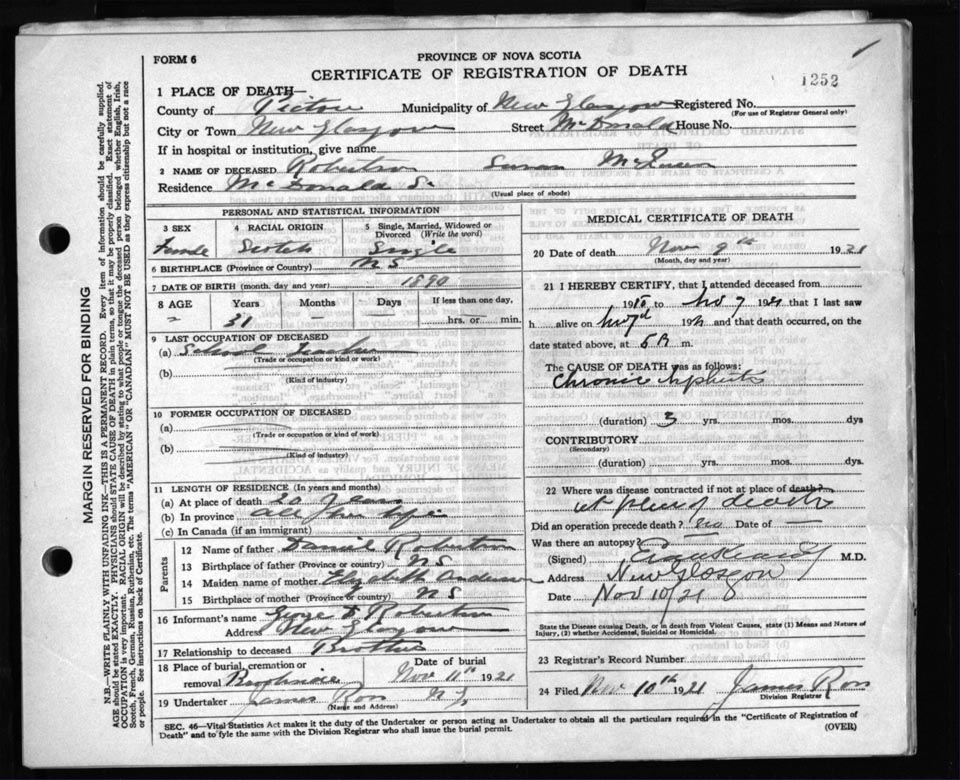 FORM 6
PROVINCE OF NOVA SCOTIA
CERTIFICATE OF REGISTRATION OF DEATH
1252
1 PLACE OF DEATH—
County of Pictou Municipality of New Glasgow Registered No.
(For use of Registrar General only)
City or Town New Glasgow Street McDonald House No.
If in hospital or institution, give name
2 NAME OF DECEASED Robertson
Residence McDonald St
(Usual place of abode)
PERSONAL AND STATISTICAL INFORMATION
3 SEX 4 RACIAL ORIGIN 5 Single, Married, Widowed or Divorced (Write the word)
Female Scotch Single
6 BIRTHPLACE (Province or Country) NS
7 DATE OF BIRTH (month, day and year) 1890
8 AGE Years Months Days If less than one day,
31 — — hrs. or min.
9 LAST OCCUPATION OF DECEASED
(a) School Teacher
(Trade or occupation or kind or work)
(b)
(Kind of industry)
10 FORMER OCCUPATION OF DECEASED
(a)
(Trade or occupation or kind of work)
(b)
(Kind of industry)
11 LENGTH OF RESIDENCE (In years and months)
(a) At place of death 20 Years
(b) In province all her life
(c) In Canada (if an immigrant)
Parents
12 Name of father Daniel Robertson
13 Birthplace of father (Province or country) NS
14 Maiden name of mother Elizabeth Anderson
15 Birthplace of mother (Province or country) NS
16 Informant's name George D Robertson
Address New Glasgow
17 Relationship to deceased Brother
18 Place of burial, cremation or removal Brookside Date of burial Nov 11th 1921
19 Undertaker James Ross N G
(Name and Address)
MEDICAL CERTIFICATE OF DEATH
20 Date of death Nov 9th 1921
(Month, day and year)
21 I HEREBY CERTIFY, that I attended deceased from
1918 to Nov 7 1921 that I last saw
h alive on Nov 7 1921 and that death occurred, on the
date stated above, at 5 A m.
The CAUSE OF DEATH was as follows:
Chronic Nephritis
(duration) 3 yrs. mos. dys
CONTRIBUTORY
(Secondary)
(duration) yrs. mos. dys.
22 Where was disease contracted if not at place of death?
at place of death
Did an operation precede death? no Date of —
Was there an autopsy?
(Signed) M.D.
Address New Glasgow
Date Nov 10/21
State the Disease causing Death, or in death from Violent Causes, state (1) Means and Nature of
Injury, (2) whether Accidental, Suicidal or Homicidal.
23 Registrar's Record Number
24 Filed Nov 10th 1921 James Ross
Division Registrar
SEC. 46—Vital Statistics Act makes it the duty of the Undertaker or person acting as Undertaker to obtain all the particulars required in the "Certificate of Registration of
Death" and to fyle the same with the Division Registrar who shall issue the burial permit. (OVER)
MARGIN RESERVED FOR BINDING
N.B.—WRITE PLAINLY WITH UNFADING INK—THIS IS A PERMANENT RECORD. Every item of information should be carefully supplied.
AGE should be stated EXACTLY. PHYSICIANS should STATE CAUSE OF DEATH in plain terms, so that it may be properly classified. Exact statement of
OCCUPATION is very important. RACIAL ORIGIN will be described by stating to what people or tongue the deceased person belonged whether English, Irish,
Scotch, French, German, Russian, Ruthenian, etc. The terms "AMERICAN" OR "CANADIAN" MUST NOT BE USED as they express citizenship but not a race
or people. See instructions on back of Certificate.